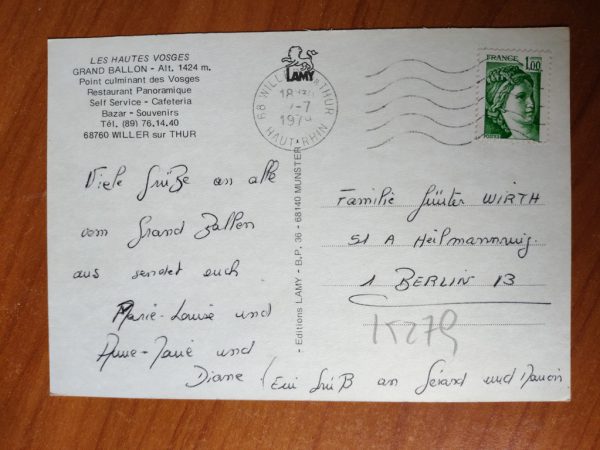 LES HAUTES VOSGES
GRAND BALLON - Alt. 1424 m.
Point culminant des Vosges
Restaurant Panoramique
Self Service - Cafeteria
Bazar - Souvenirs
Tél. (89) 76.14.40
68760 WILLER sur THUR
LAMY
68 WILLER THUR
18H
7-7
HAUT-RHIN
FRANCE
1,00
Viele Grüße an alle
vom Grand Ballon
aus sendet euch
Marie-Louise und
Anne-Marie und
Diane (Ein Grüß an Gérard und
- Editions LAMY - B.P. 36 - 68140 MUNSTER
Familie Günter WIRTH
51 A Heilmannring.
1 BERLIN 13
K279